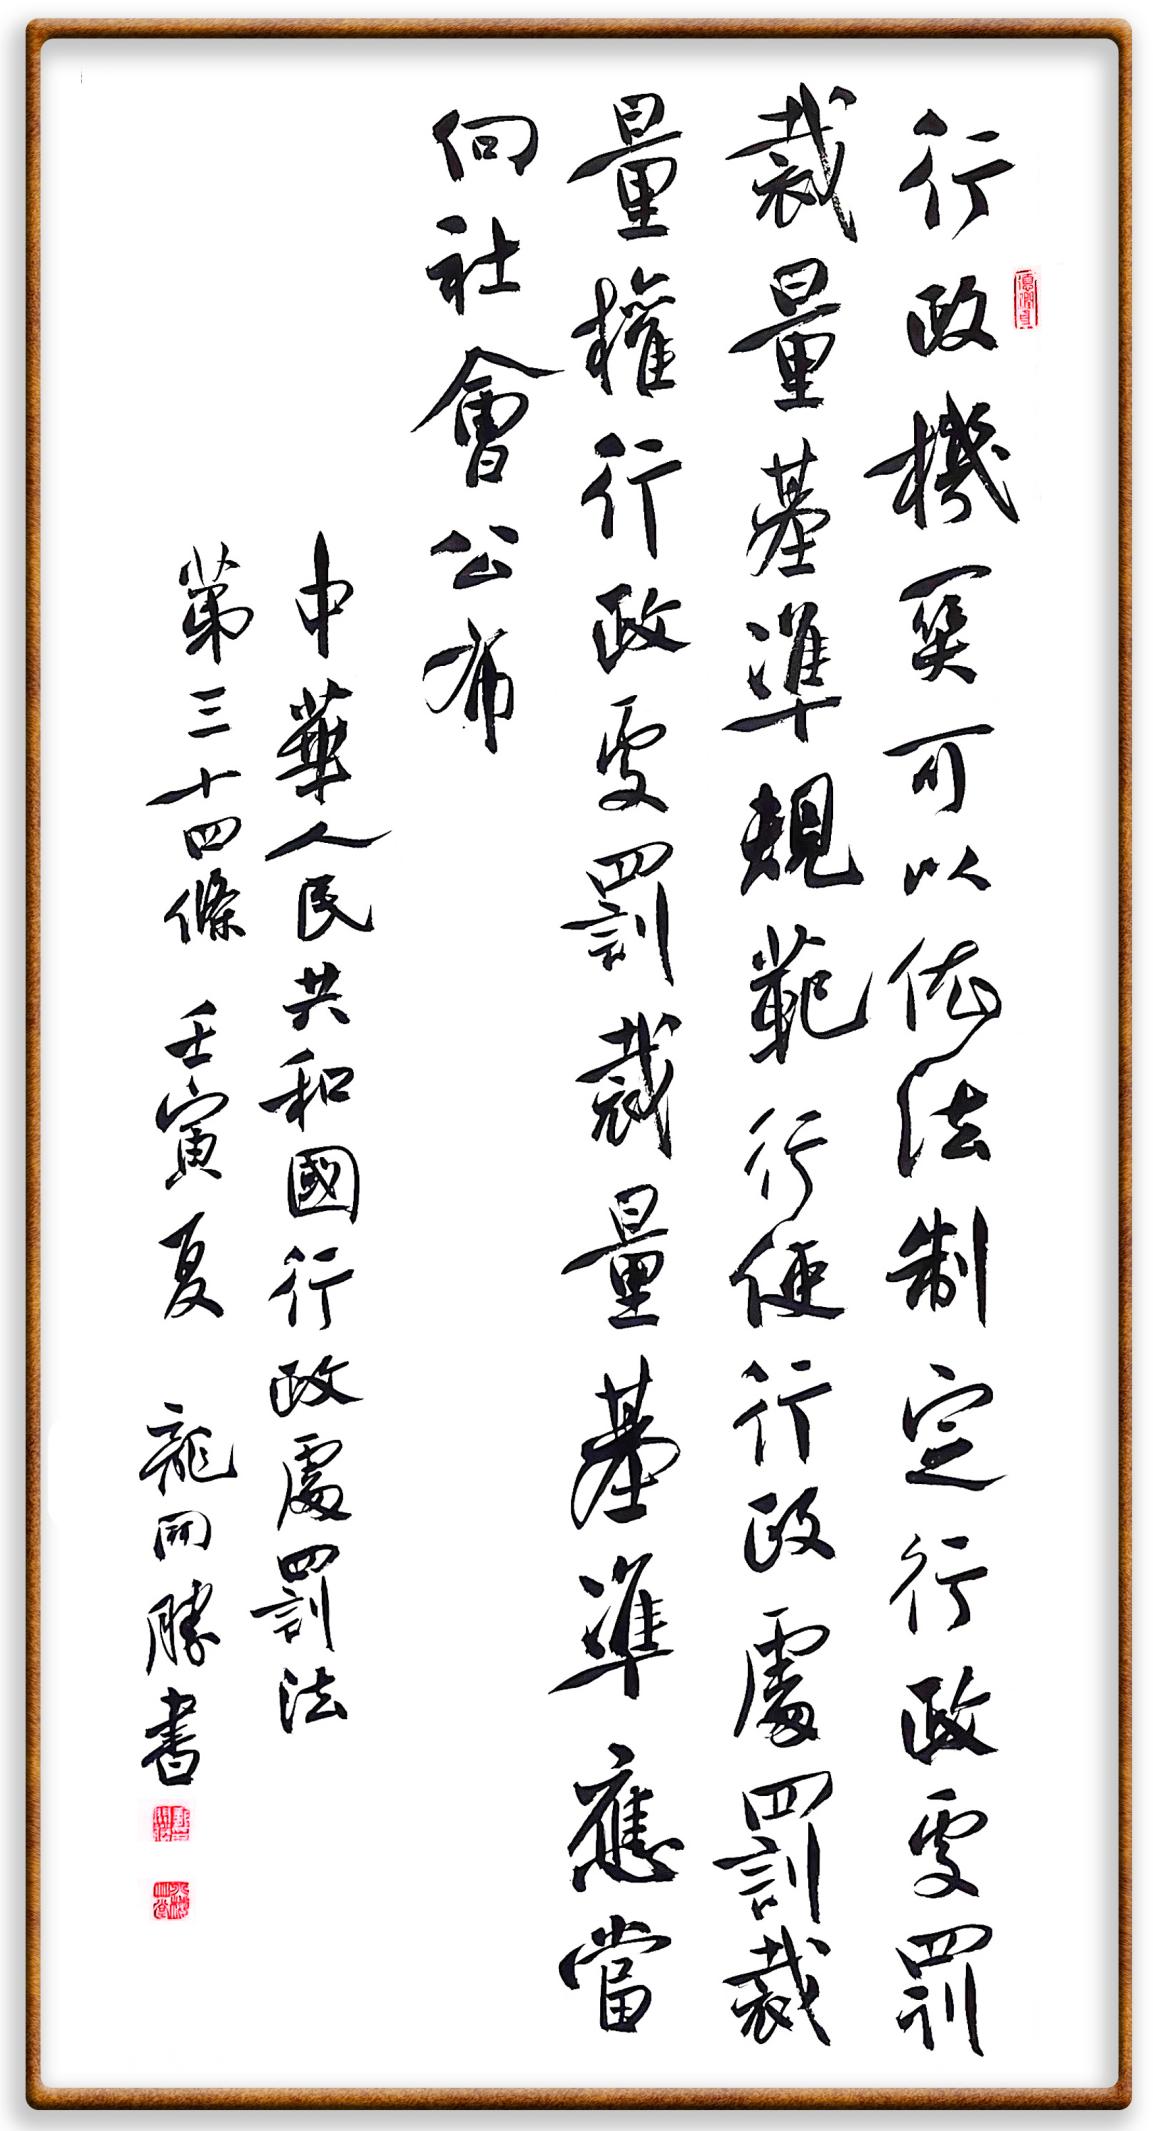 行政機关可以依法制定行政處罰
裁量基準規範行使行政處罰裁
量權行政處罰裁量基準應當
向社會公布
中華人民共和國行政處罰法
第三十四條 壬寅夏 龍開勝書